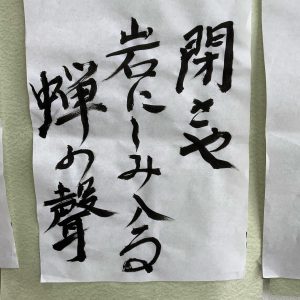 閑さや
岩にしみ入る
蝉の聲